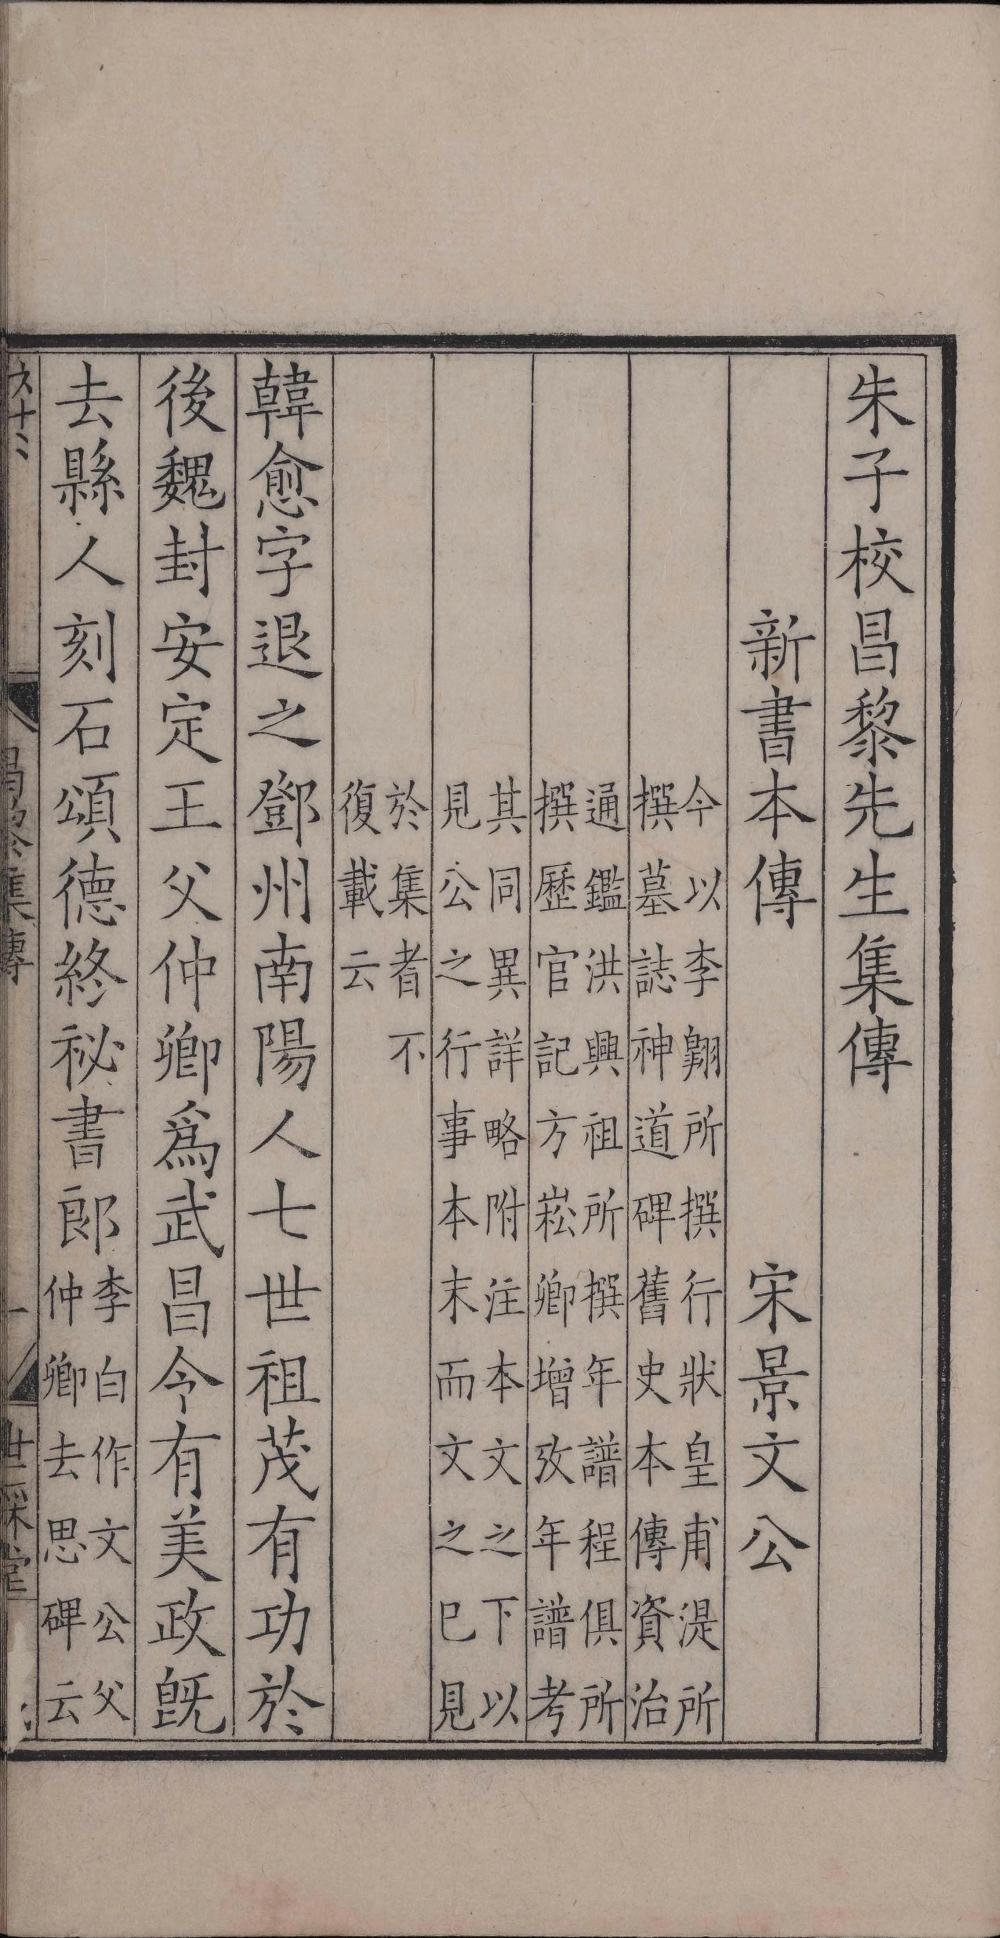 朱子校昌黎先生集傳
新書本傳　宋景文公
今以李翺所撰行狀皇甫湜所
撰墓誌神道碑舊史本傳資治
通鑑洪興祖所撰年譜程俱所
撰歷官記方崧卿增攷年譜考
其同異詳略附注本文之下以
見公之行事本末而文之已見
於集者不
復載云
韓愈字退之鄧州南陽人七世祖茂有功於
後魏封安定王父仲卿爲武昌令有美政旣
去縣人刻石頌德終祕書郎
李白作文公父
仲卿去思碑云
昌黎集傳
一
世綵堂